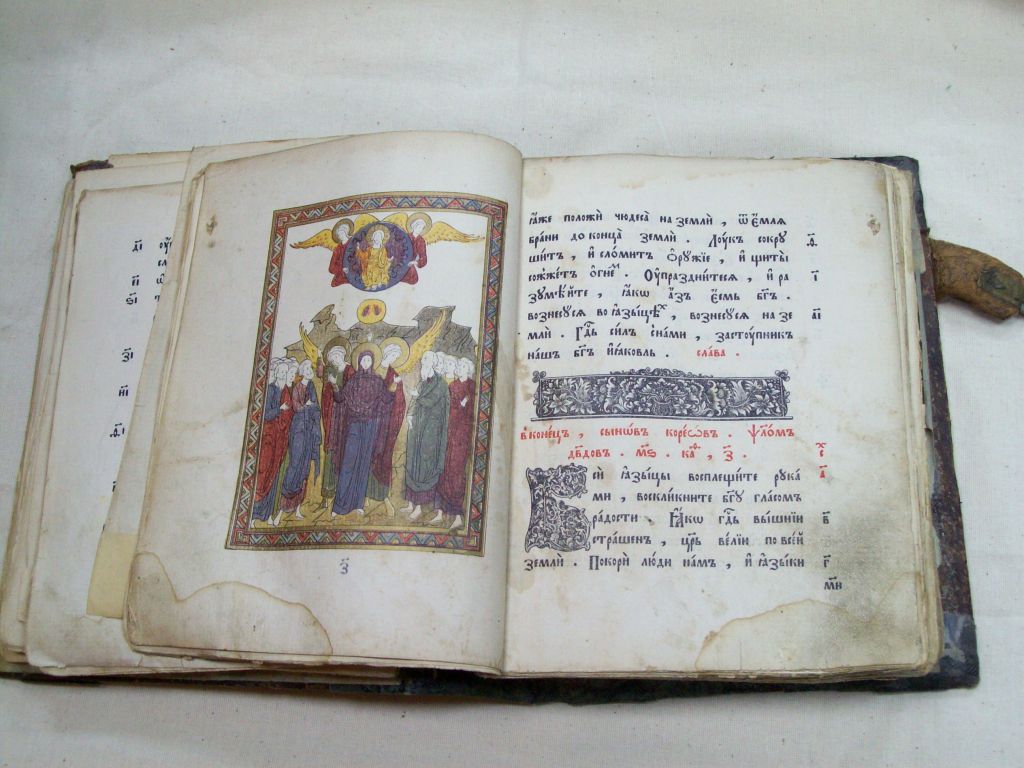 д҃і
і҃і
ѕ҃і
з҃і
и҃і
ѳ҃і
з҃
ꙗ҆́же положѝ чюдеса̀ на землѝ , ѿе́мля
бра́ни до конца̀ землѝ . Лꙋ́къ сокрꙋ
ши́тъ , и҆ сло́митъ ѻ҆рꙋ́жїе , и҆ щиты̀
сожже́тъ ѻ҆гне́мъ . Оу҆праздни́теся , и҆ ра
зꙋмѣ́йте , ꙗ҆́кѡ а҆́зъ є҆́смь бг҃ъ .
вознесꙋ́ся во ꙗ҆зы́цѣхъ , вознесꙋ́ся на зе
млѝ . Гдⷭ҇ь си́лъ сна́ми , застꙋ́пникъ
на́шъ бг҃ъ і҆а́ковль . сла́ва .
в коне́цъ , сынѡ́въ коре́ѡвъ . ѱало́мъ
дв҃довъ . м҃ѕ . каⷴ҇ , з҃ .
Всѝ ꙗ҆зы́цы восплещи́те рꙋка́
ми , воскли́кните бг҃ꙋ гла́сомъ
ра́дости . Ꙗ҆́кѡ гдⷭ҇ь вы́шнїи
стра́шенъ , цр҃ь ве́лїи по все́й
землѝ . Покорѝ лю́ди на́мъ , и҆ ꙗ҆зы́ки
ми